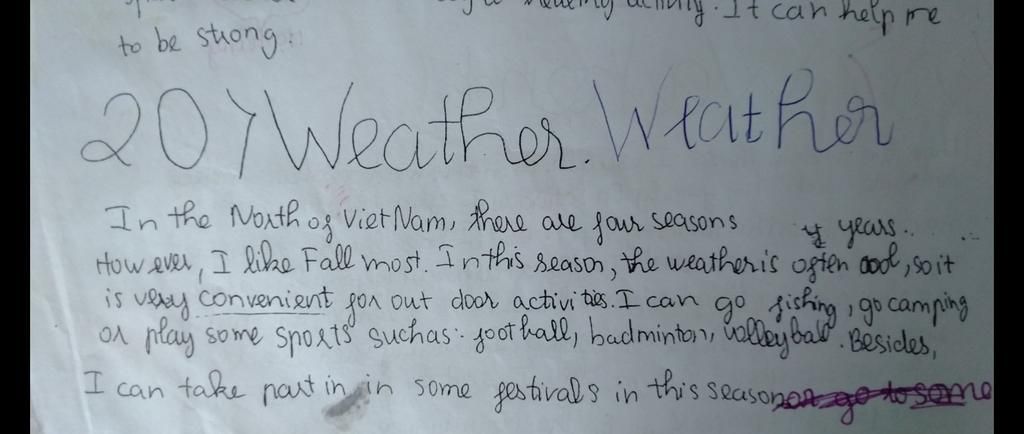 activity. It can help me
to be strong.
20) Weather. Weather
In the North of Viet Nam, there are four seasons y years..
However, I like Fall most. In this season, the weather is often cool, so it
is very convenient for out door activities. I can go fishing, go camping
or play some sports such as: foot ball, badminton, volleyball. Besides,
I can take part in in some festivals in this season or go to some